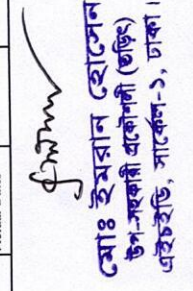 মোঃ ইমরান হোসেন
উপ-সহকারী প্রকৌশলী (তড়িৎ)
এইচইডি, সার্কেল-১, ঢাকা।